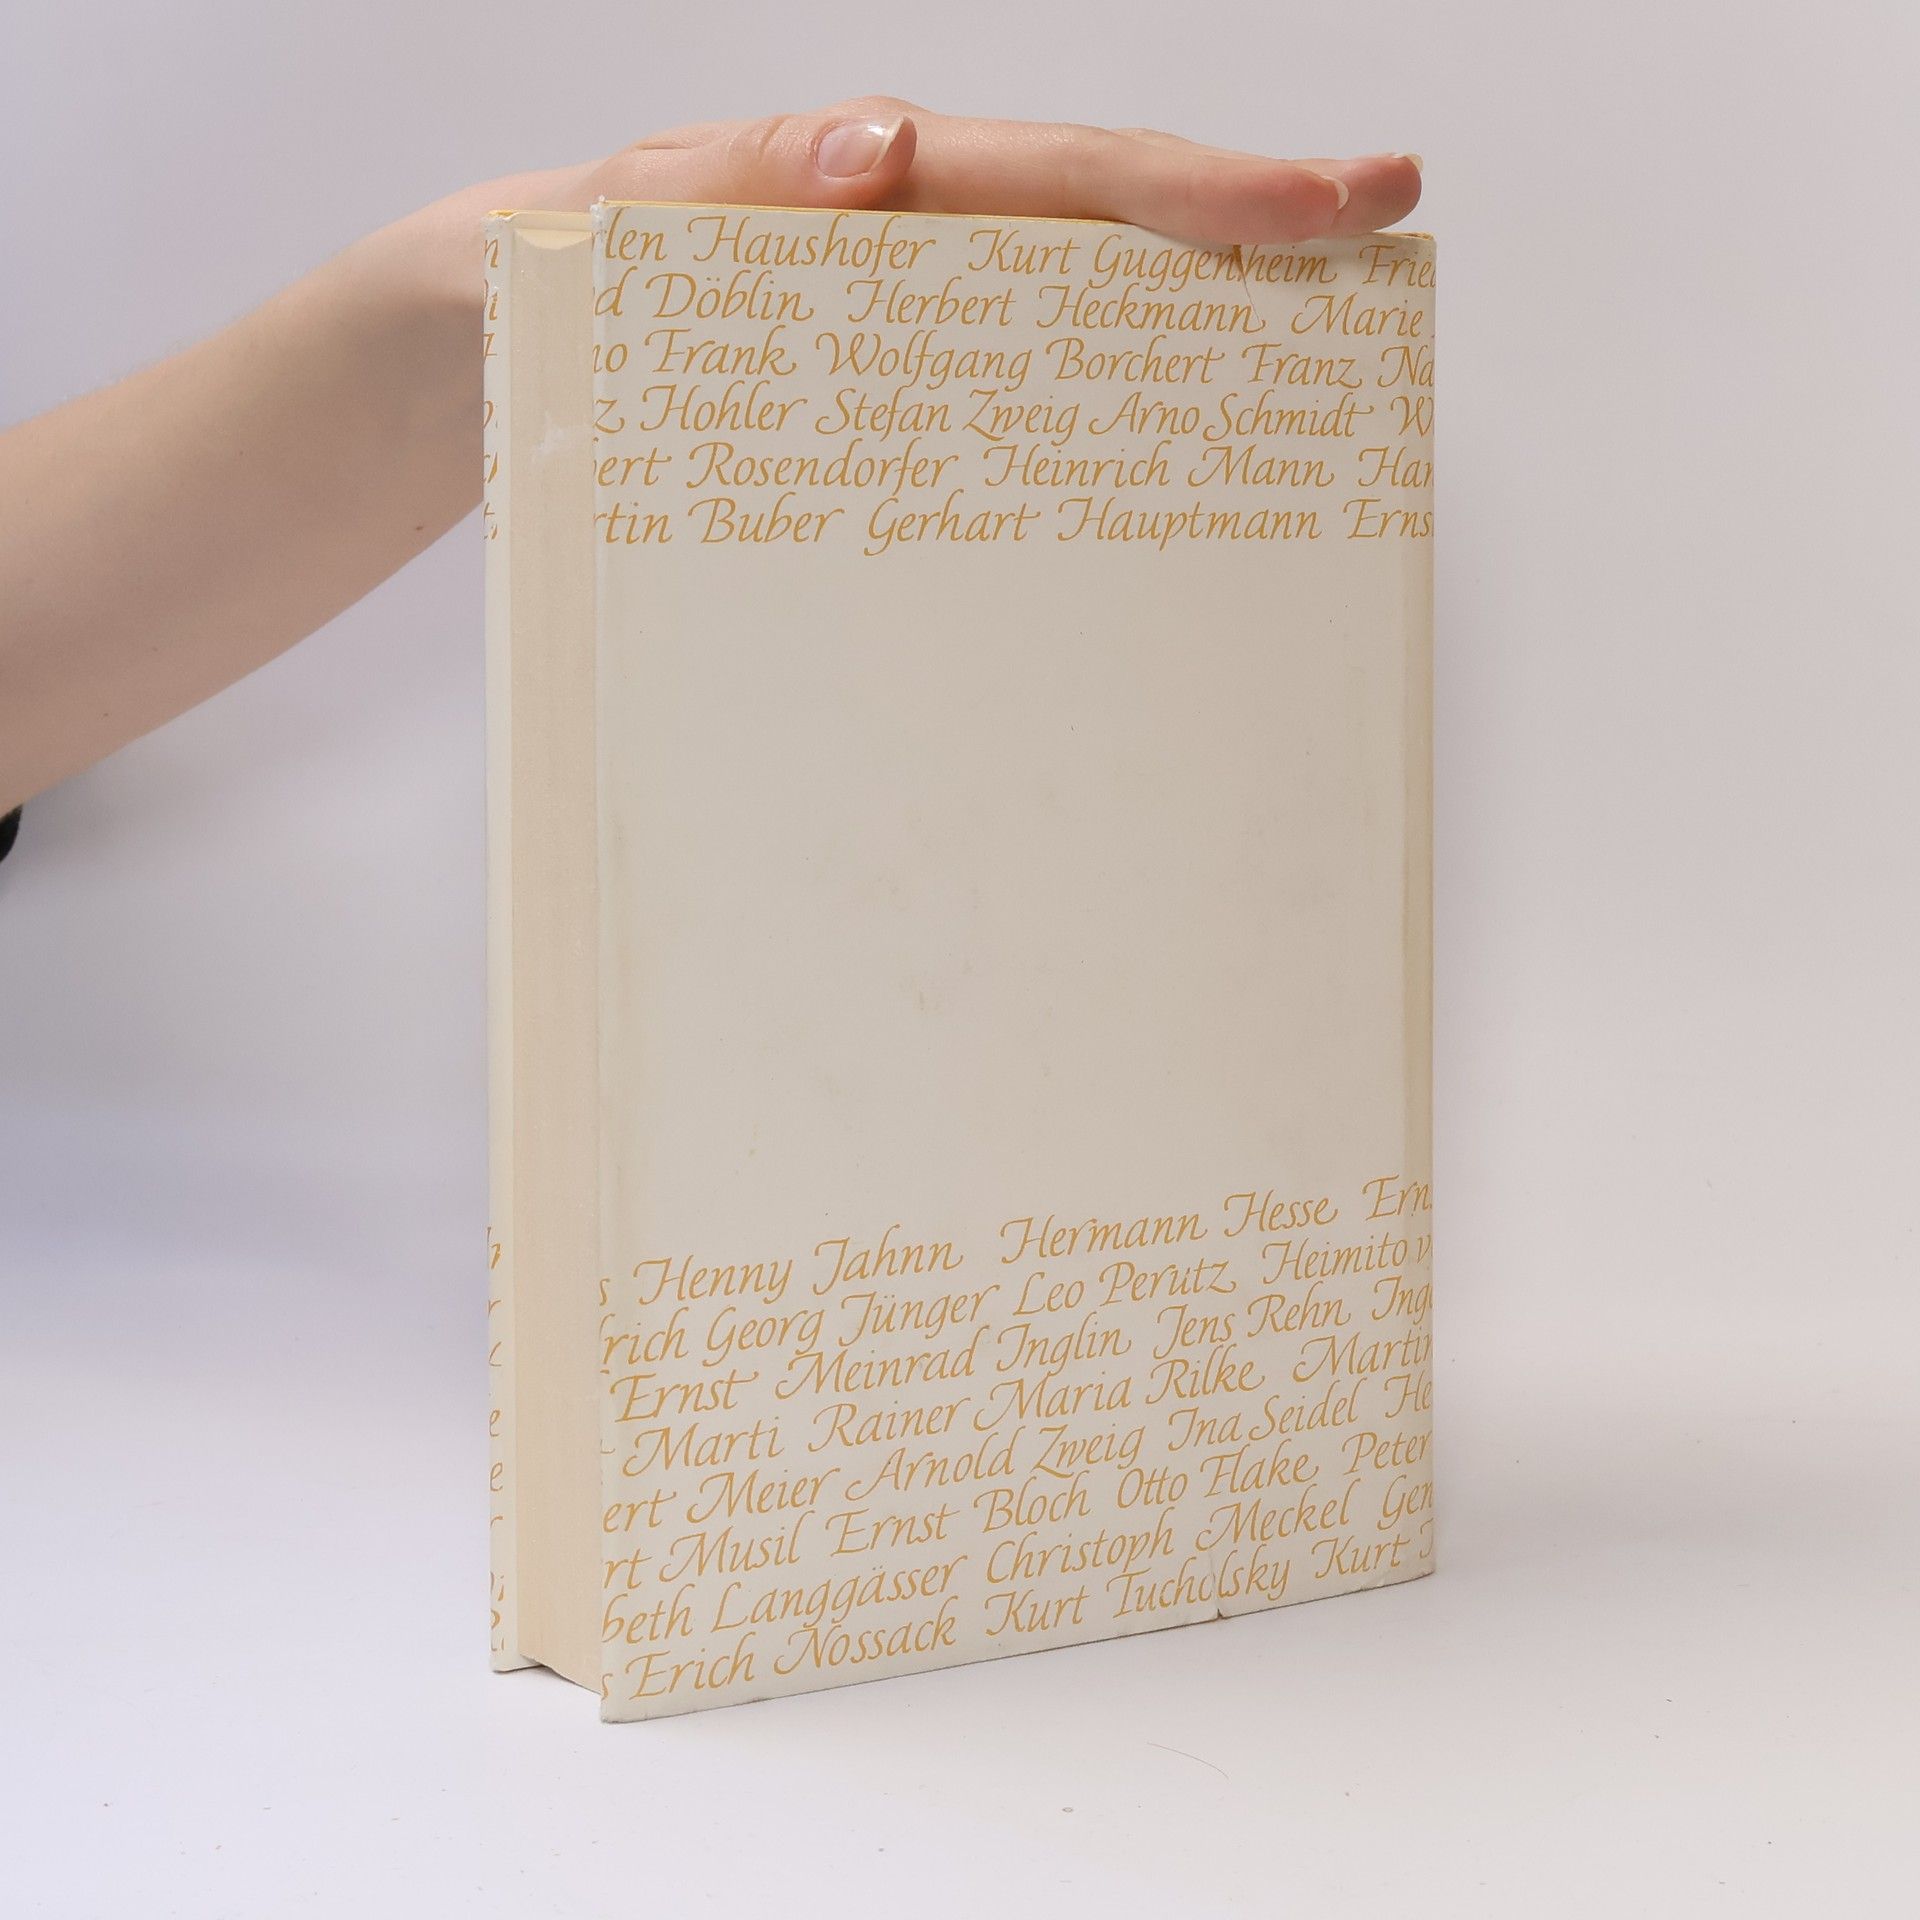 len Haushofer Kurt Guggenheim Fried
d Döblin Herbert Heckmann Marie
no Frank Wolfgang Borchert Franz Na
z Hohler Stefan Zweig Arno Schmidt W
bert Rosendorfer Heinrich Mann Han
rtin Buber Gerhart Hauptmann Ernst
s Henny Jahnn Hermann Hesse Erns
drich Georg Jünger Leo Perutz Heimito v
Ernst Meinrad Inglin Jens Rehn Inge
t Marti Rainer Maria Rilke Martin
ert Meier Arnold Zweig Ina Seidel He
rt Musil Ernst Bloch Otto Flake Peter
beth Langgässer Christoph Meckel Ger
s Erich Nossack Kurt Tucholsky Kurt